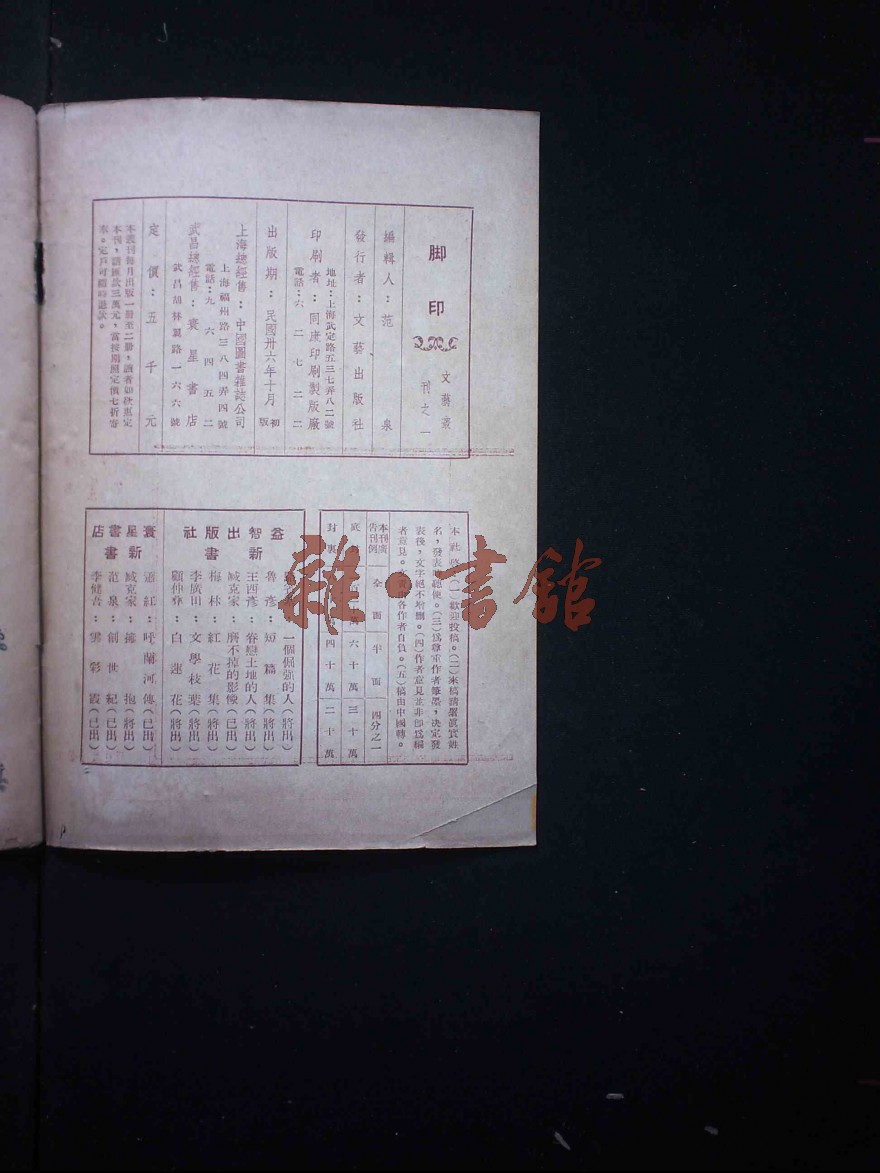 脚印
文藝叢刊之一
編輯人：范泉
發行者：文藝出版社
地址：上海武定路五三七弄八二號
印刷者：同康印刷製版廠
電話：六二七二二
出版期：民國卅六年十月初版
上海總經售：中國圖書雜誌公司
上海福州路三八四弄四號
電話：九六四五二
武昌總經售：寰星書店
武昌胡林翼路一六六號
定價：五千元
本叢刊每月出版一冊至二冊，讀者如欲惠定
本刊，請匯款三萬元，當按期照定價七折寄
奉。定戶可隨時退款。
本社啓：(一)歡迎投稿。(二)來稿請署真實姓
名，發表時聽便。(三)爲尊重作者筆墨，決定發
表後，文字絕不增刪。(四)作者意見並非卽爲編
者意見。文責由各作者自負。(五)稿由中國轉。
本刊廣告刊例 全面 半面 四分之一
底 六十萬 三十萬
封裏 四十萬 二十萬
益智出版社新書
一個倔强的人(將出)
魯彥：短篇集(將出)
王西彥：眷戀土地的人(將出)
臧克家：磨不掉的影像(已出)
梅林：紅花集(將出)
李廣田：文學枝葉(將出)
顧仲彝：白蓮花(將出)
寰星書店新書
蕭紅：呼蘭河傳(已出)
臧克家：擁抱(將出)
范泉：創世紀(已出)
李健吾：雲彩霞(已出)
雜·書館